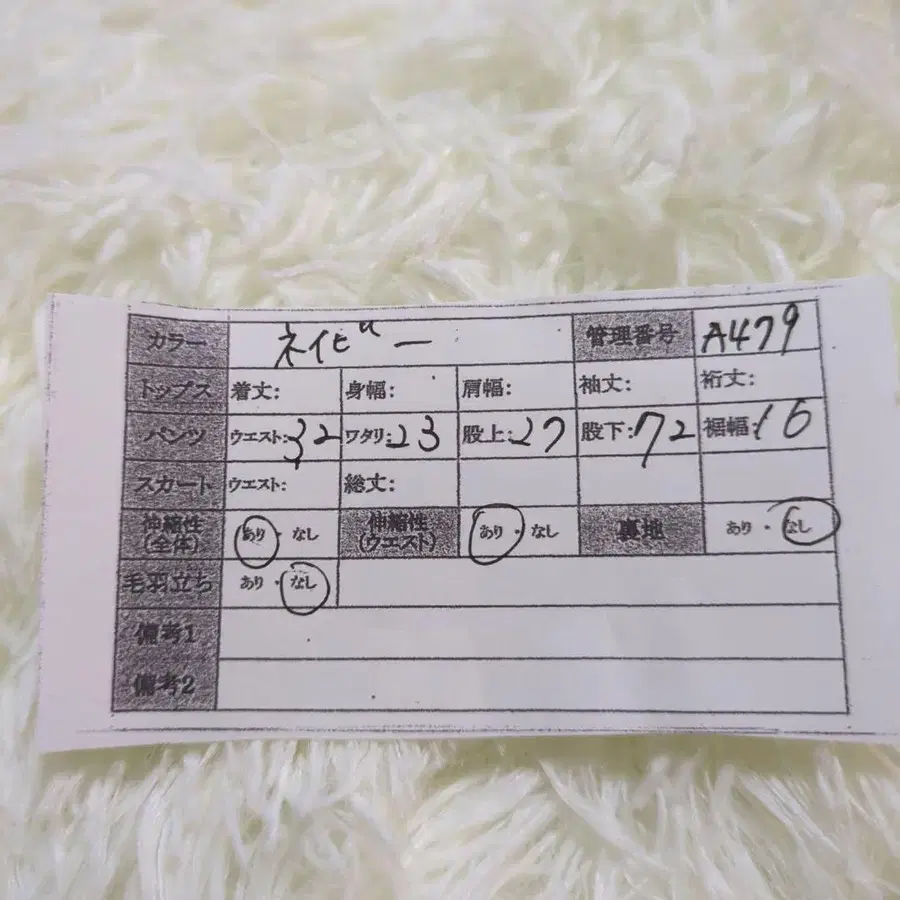 カラー ネイビー 管理番号 A479
トップス 着丈: 身幅: 肩幅: 袖丈: 裄丈:
パンツ ウエスト:32 ワタリ:23 股上:27 股下:72 裾幅:16
スカート ウエスト: 総丈:
伸縮性(全体) あり・なし 伸縮性(ウエスト) あり・なし 裏地 あり・なし
毛羽立ち あり・なし
備考1
備考2